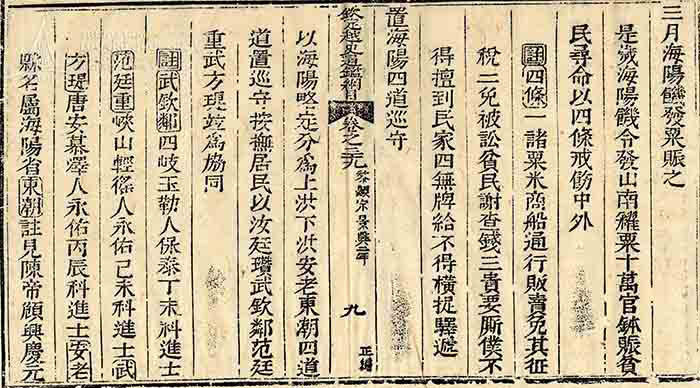 三月海陽饑發粟賑之
是歲海陽饑令發山南糴粟十萬官鉢賑貧
民尋命以四條戒飭中外
註四條一諸粟米商船通行販賣免其征
稅二免被訟貧民謝查錢三貴要厮僕不
得擅到民家四無牌給不得橫捉驛遞
置海陽四道巡守
欽定越史通鑑綱目 卷之三十九 黎顯宗景興二年 九 正編
以海陽略定分爲上洪下洪安老東潮四道
道置巡守按撫居民以汝廷瓚武欽鄰范廷
重武方瑅竝爲協同
註武欽鄰四岐玉勒人保泰丁未科進士
范廷重峽山輕徭人永佑己未科進士武
方瑅唐安慕澤人永佑丙辰科進士安老
縣名屬海陽省東潮註見陳帝顒興慶元